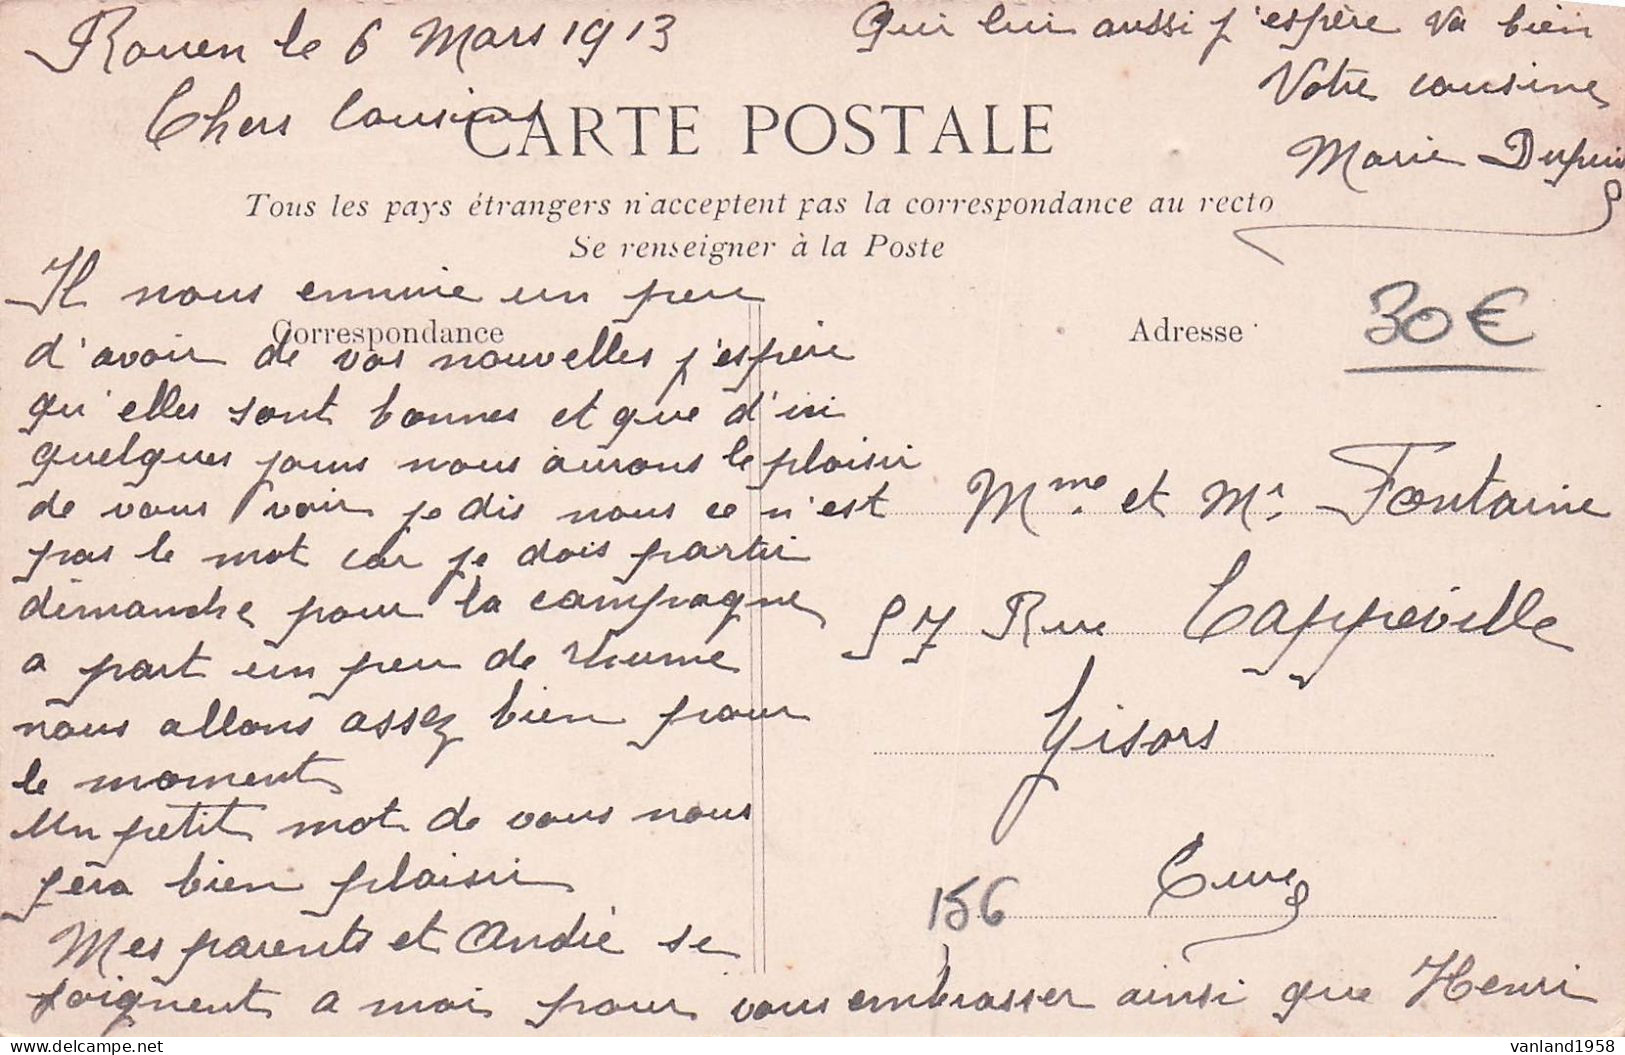 Rouen le 6 Mars 1913
Chers Cousins
CARTE POSTALE
Tous les pays étrangers n'acceptent pas la correspondance au recto
Se renseigner à la Poste
Correspondance
Il nous ennuie un peu
d'avoir de vos nouvelles j'espère
qu'elles sont bonnes et que d'ici
quelques jours nous aurons le plaisir
de vous voir je dis nous ce n'est
pas le mot car je dois partir
dimanche pour la campagne
a part un peu de rhume
nous allons assez bien pour
le moment
Un petit mot de vous nous
fera bien plaisir
Mes parents et André se
joignent a moi pour vous embrasser ainsi que Henri
Qui lui aussi j'espère va bien
Votre cousine
Marie Dupuis
Adresse
30€
Mme et Mr Fontaine
57 Rue Cappeville
Gisors
Eure
156
vanland1958